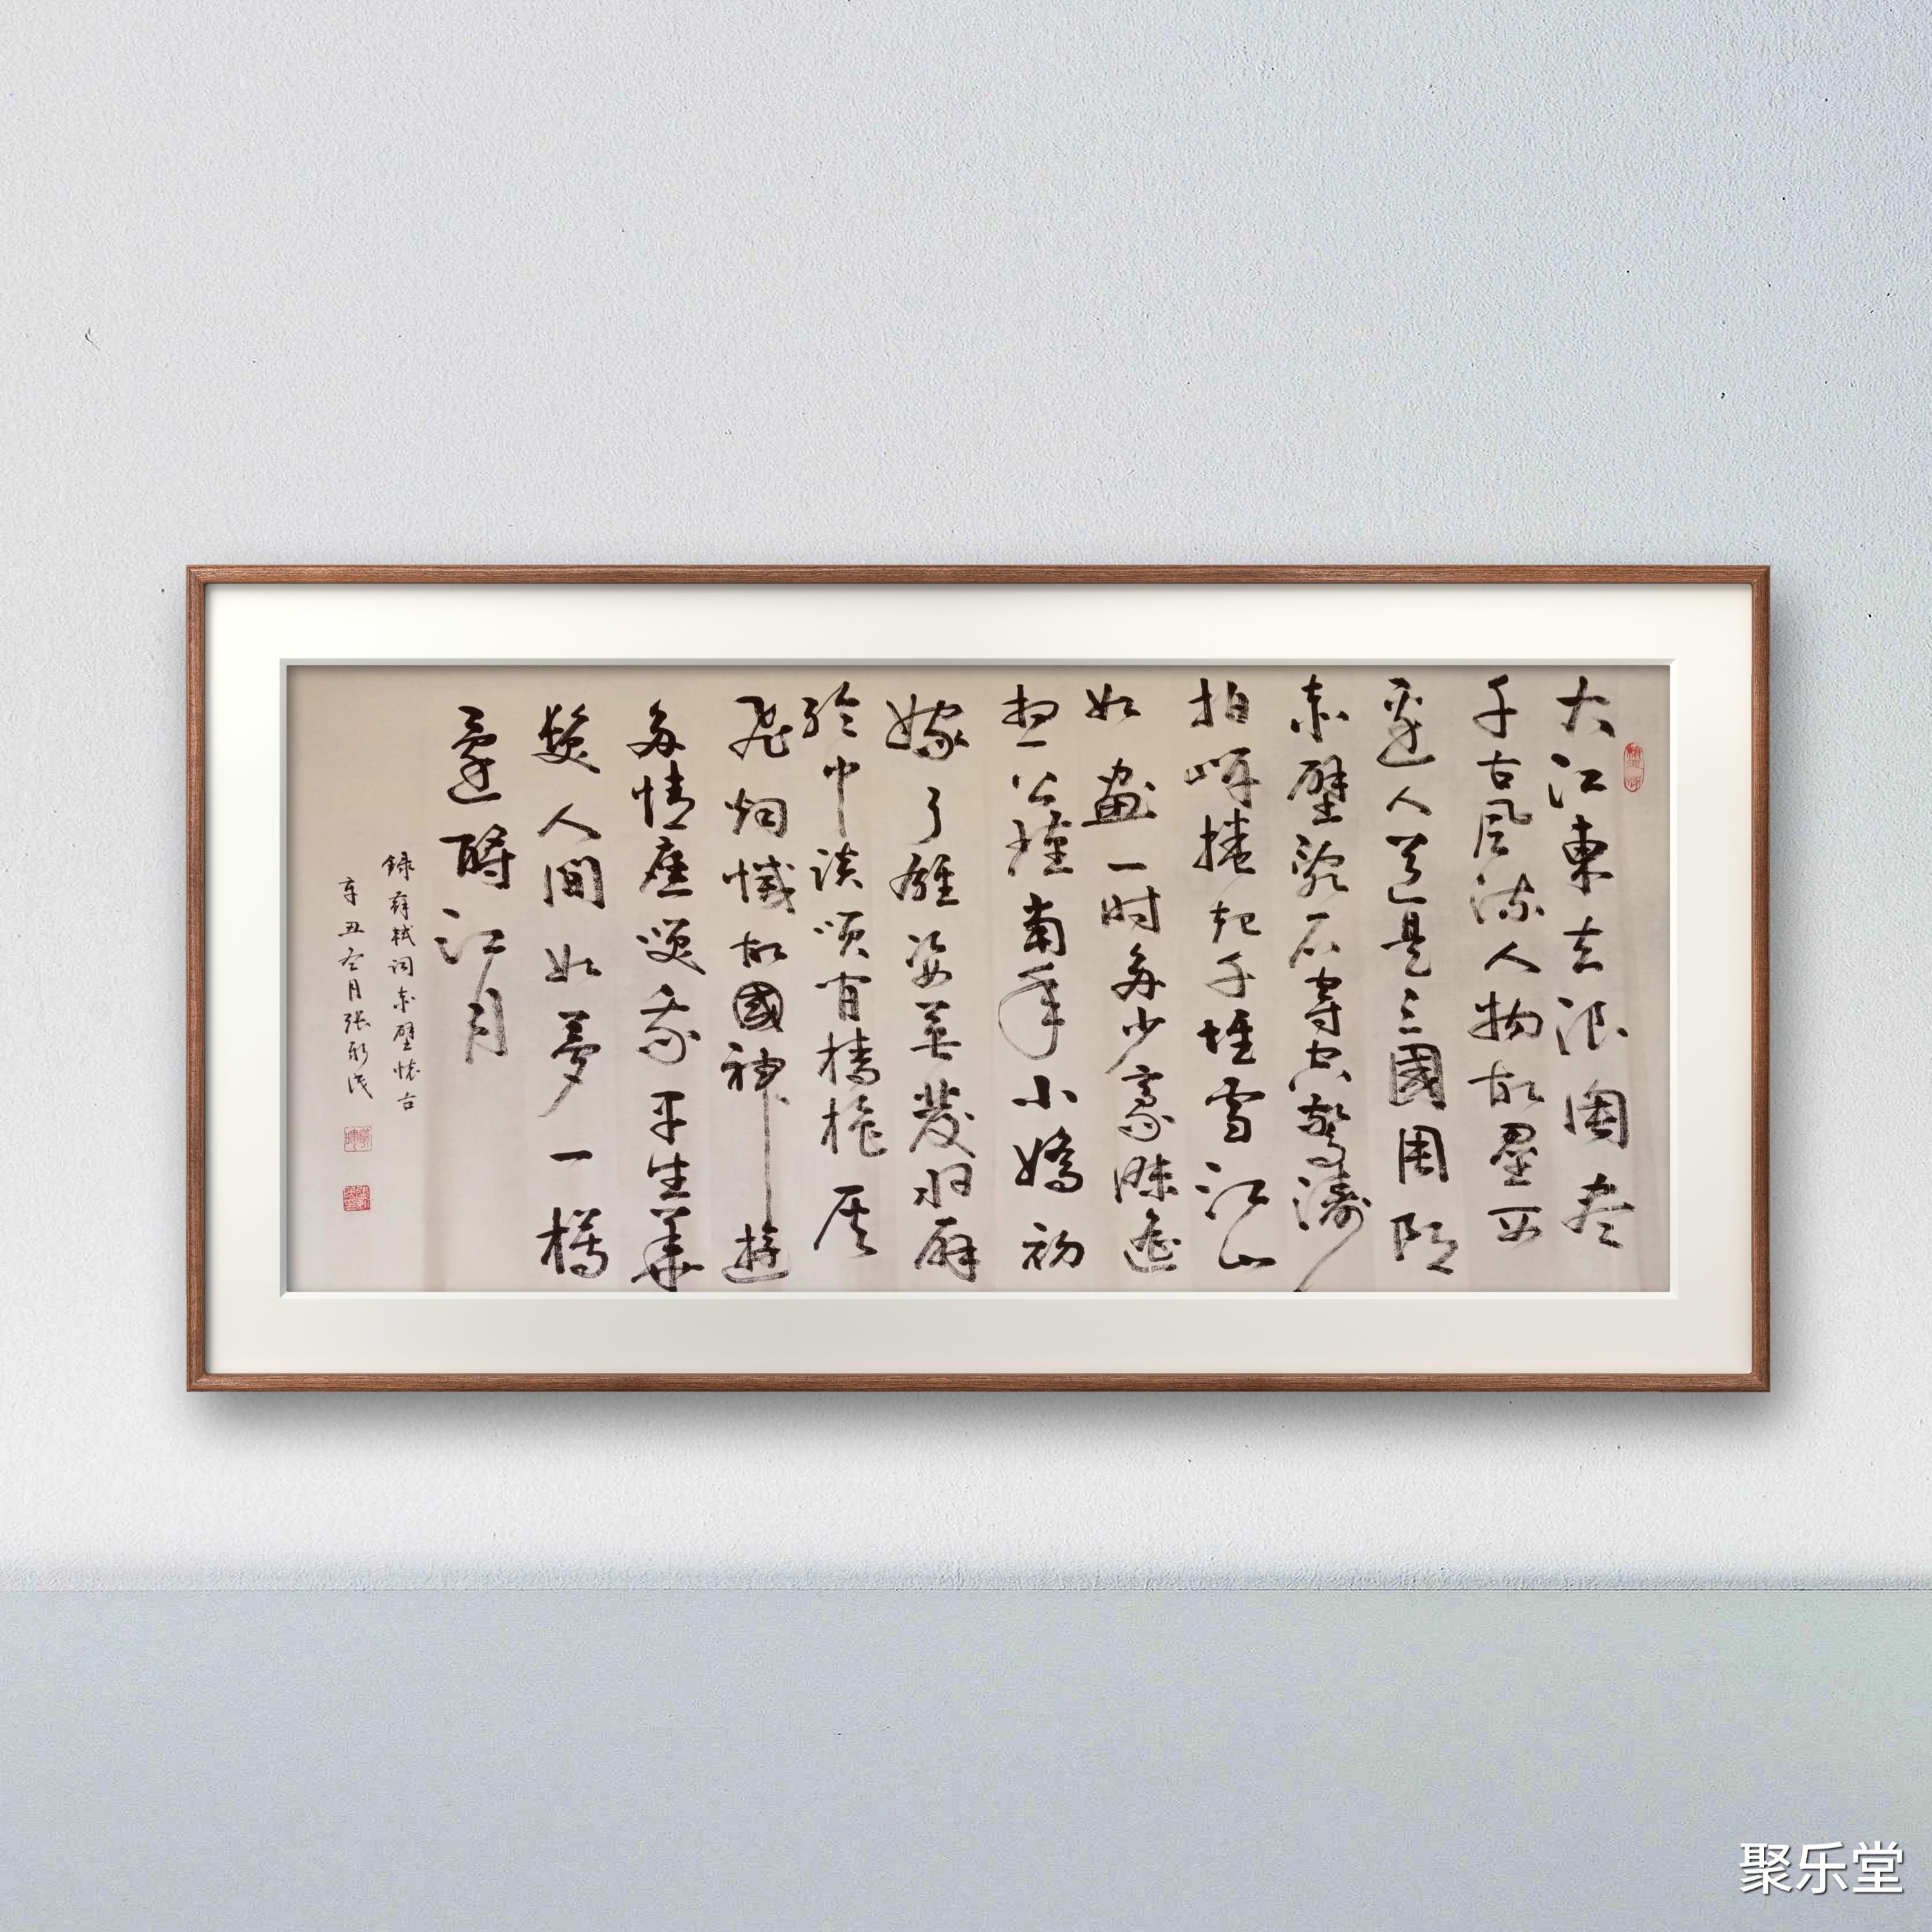 大江東去浪淘盡
千古風流人物故壘西
邊人道是三國周郎
赤壁亂石穿空驚濤
拍岸捲起千堆雪江山
如畫一時多少豪傑遙
想公瑾當年小嬌初
嫁了雄姿英發羽扇
綸巾談笑間檣櫓灰
飛烟滅故國神遊
多情應笑我早生華
髮人間如夢一樽
還酹江月
録蘇軾詞赤壁懷古
辛丑冬月張
聚乐堂